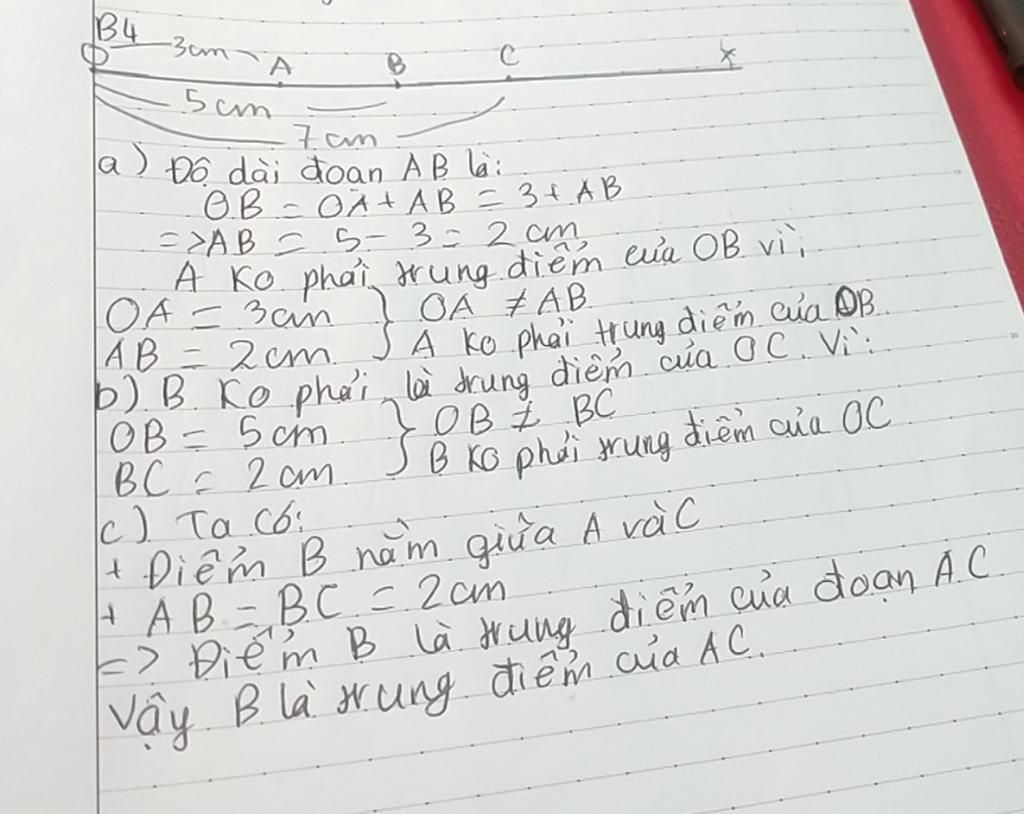 B4
O 3cm A B C x
5cm
7cm
a) Độ dài đoạn AB là:
OB = OA + AB = 3 + AB
=> AB = 5 - 3 = 2 cm
A Ko phải trung điểm của OB vì:
OA = 3cm } OA ≠ AB
AB = 2cm A ko phải trung điểm của OB
b) B Ko phải là trung điểm của OC. Vì:
OB = 5cm } OB ≠ BC
BC = 2cm B ko phải trung điểm của OC
c) Ta có:
+ Điểm B nằm giữa A và C
+ AB = BC = 2cm
=> Điểm B là trung điểm của đoạn AC
Vậy B là trung điểm của AC.